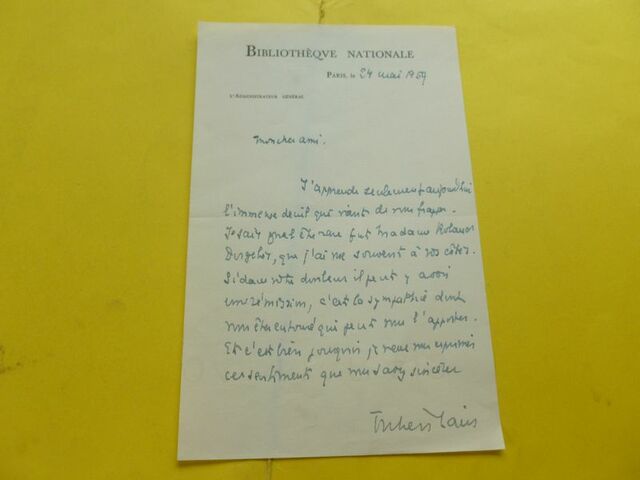 BIBLIOTHÈQVE NATIONALE
PARIS, le 24 mai 1959
L'ADMINISTRATEUR GÉNÉRAL
Mon cher ami.
J'apprends seulement aujourd'hui
l'immense deuil qui vient de vous frapper.
Je sais quel être rare fut Madame Roland
Dorgelès, que j'ai vue souvent à vos côtés.
Si dans votre douleur il peut y avoir
une rémission, c'est la sympathie dont
vous êtes entouré qui peut vous l'apporter.
Et c'est bien pourquoi je veux vous exprimer
ces sentiments que vous savez sincères